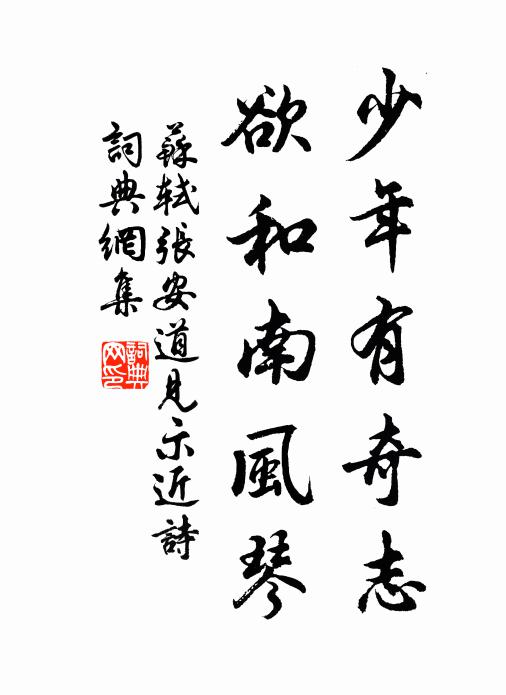 少年有奇志
欲和南風琴
蘇軾張安道見示近詩
詞典網集
詞典網印